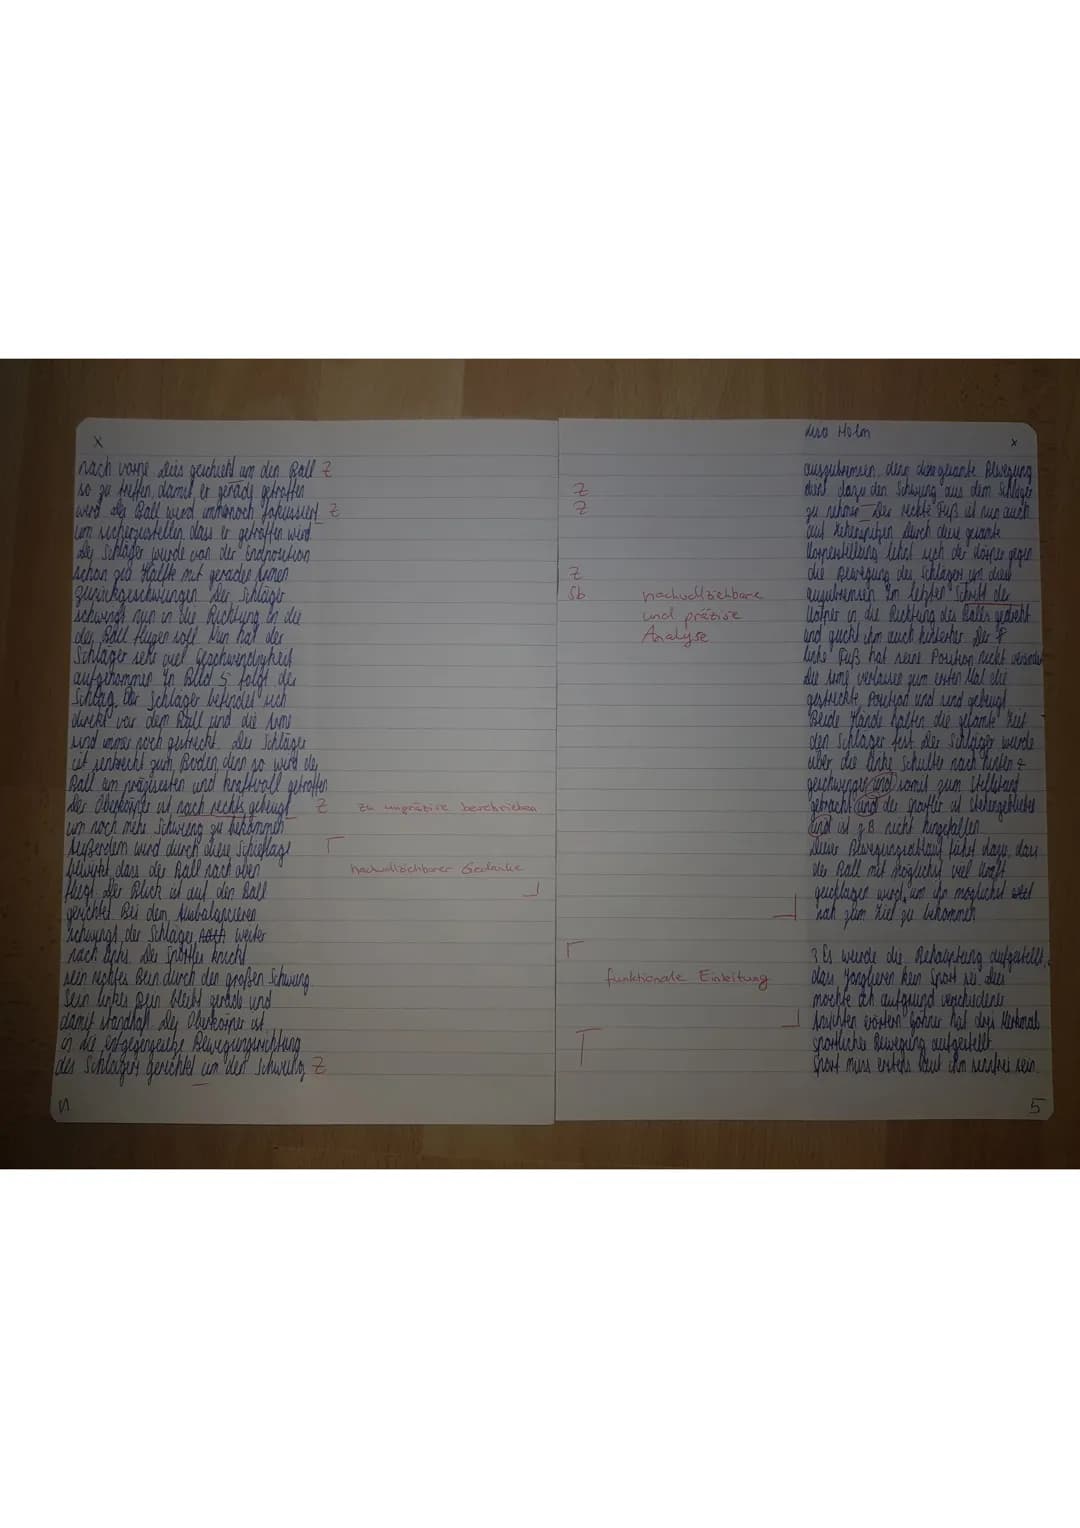 x
nach vorne Dies geschieht um den Ball Z
so zu treffen, damit er gerade getroffen
wird der Ball wird immernoch fokussiert Z
um sicherzustellen dass er getroffen wird
Der Schläger wurde von der Endposition
schon zur Hälfte mit geraden Armen
zurückgeschwungen Der Schläger
schwingt nun in die Richtung in die
der Ball fliegen soll Nun hat der
Schläger sehr viel Geschwindigkeit
aufgenommen In Bild 5 folgt der
Schlag, der Schläger befindet sich
direkt vor dem Ball und die Arme
sind immer noch gestreckt Der Schläger
ist senkrecht zum Boden denn so wird der
Ball am präzisesten und kraftvoll getroffen
Der Oberkörper ist nach rechts gebeugt Z zu unpräzise beschrieben
um noch mehr Schwung zu bekommen
Außerdem wird durch diese Schieflage
bewirkt dass der Ball nach oben nachvollziehbarer Gedanke
fliegt Der Blick ist auf den Ball
gerichtet Bei dem Ausbalancieren
schwingt der Schläger weiter
nach links Der Sportler knickt
sein rechtes Bein durch den großen Schwung
Sein linkes Bein bleibt gerade und
damit standhaft Der Oberkörper ist
in die Bewegungsrichtung
des Schlägers gerichtet um den Schwung Z
Lisa Holm
x
auszubremsen, denn diese Bewegung
Z dient dazu den Schwung aus dem Schläger
Z zu nehmen Der rechte Fuß ist nun auch
auf Zehenspitzen Durch diese gesamte
Körperstellung lehnt sich der Körper gegen
Z die Bewegung des Schlägers um diese
Sb nachvollziehbare auszubremsen Im letzten Schritt der
und präzise Körper in die Richtung des Balles gedreht
Analyse und guckt ihm auch hinterher Der
linke Fuß hat seine Position nicht verändert
Die Arme verlassen zum ersten Mal die
gestreckte Position und sind gebeugt
Beide Hände halten die gesamte Zeit
den Schläger fest Der Schläger wurde
über die linke Schulter nach hinten
geschwungen und somit zum Stillstand
gebracht und der Sportler ist stehengeblieben
und ist z B nicht hingefallen
Dieser Bewegungsablauf führt dazu, dass
der Ball mit möglichst viel Kraft
geschlagen wird, um ihn möglichst
nah zum Ziel zu bekommen
3 Es wurde die Behauptung aufgestellt,
funktionale Einleitung dass Jonglieren kein Sport sei Dies
möchte ich aufgrund verschiedener
Ansichten erörtern hat drei Merkmale
sportlicher Bewegung aufgestellt
Sport muss erstens laut ihm sein
5